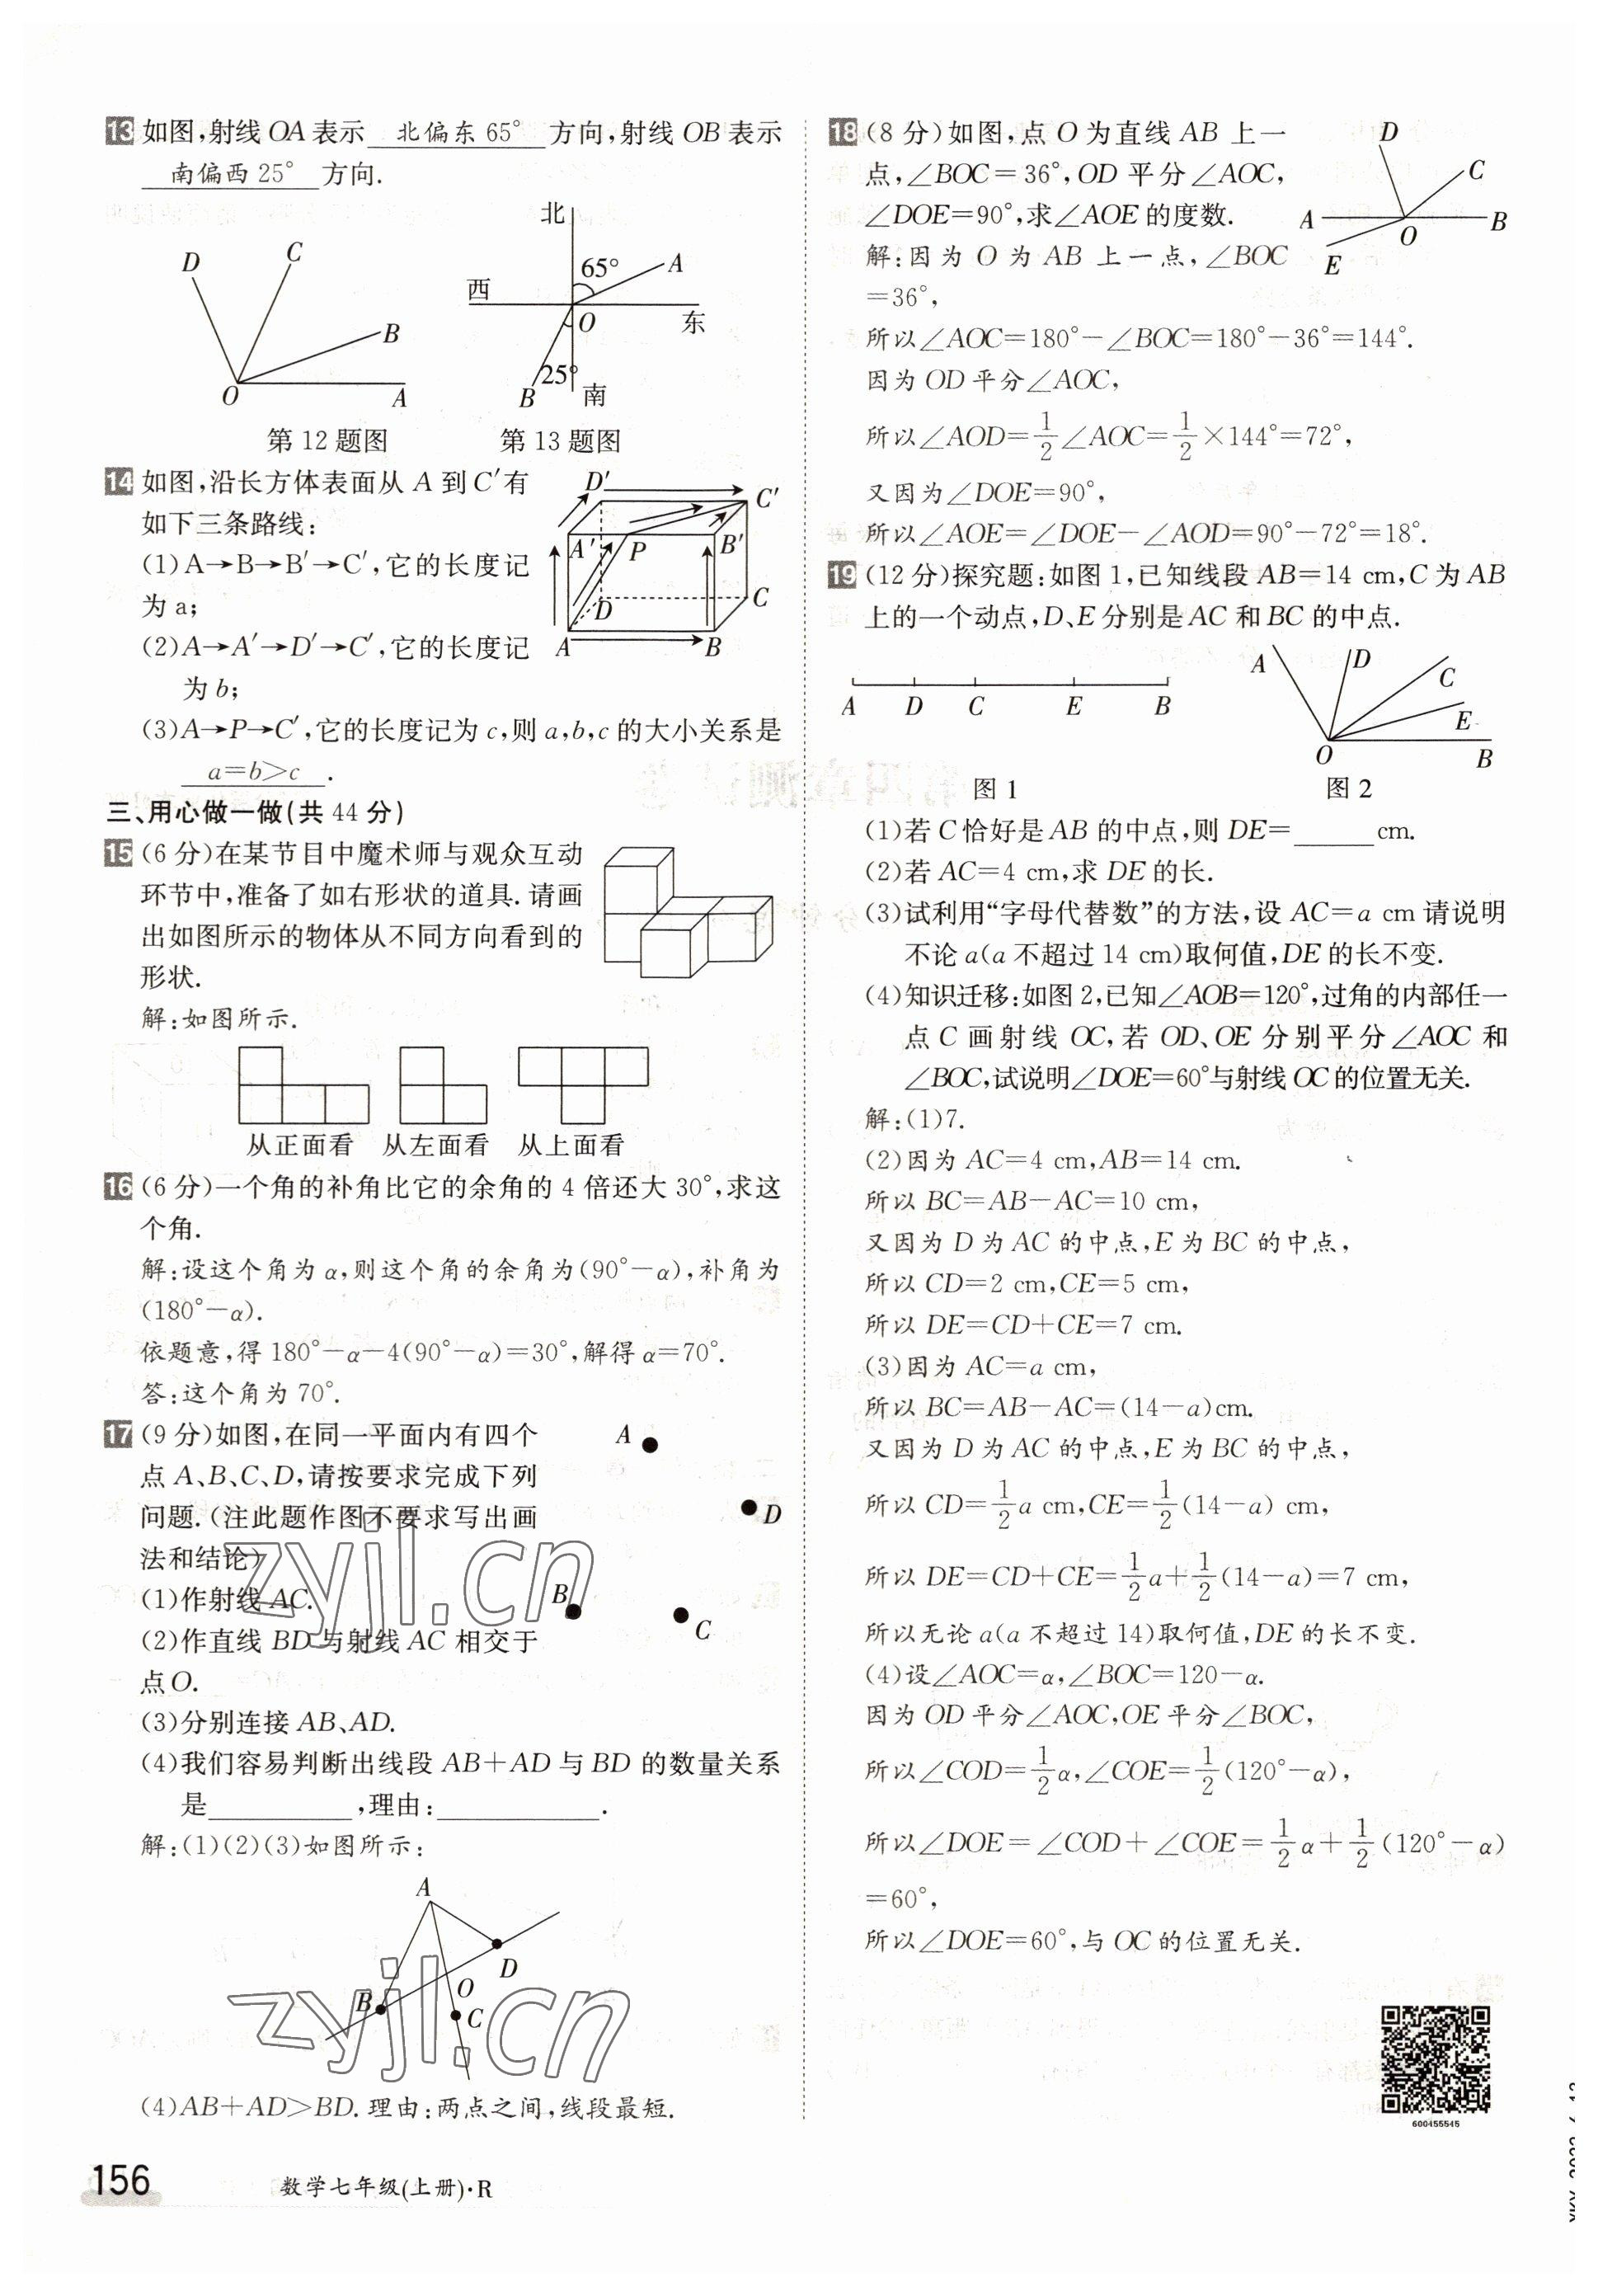 13 如图,射线OA表示 北偏东65° 方向,射线OB表示
南偏西25° 方向.
D
C
B
O
A
北
65°
A
西
O
东
25°
B
南
第12题图
第13题图
14 如图,沿长方体表面从A到C′有
如下三条路线:
(1)A→B→B′→C′,它的长度记
为a;
(2)A→A′→D′→C′,它的长度记
为b;
(3)A→P→C′,它的长度记为c,则a,b,c的大小关系是
a=b>c .
D′
C′
A′
P
B′
D
C
A
B
三、用心做一做(共44分)
15 (6分)在某节目中魔术师与观众互动
环节中,准备了如右形状的道具.请画
出如图所示的物体从不同方向看到的
形状.
解:如图所示.
从正面看 从左面看 从上面看
16 (6分)一个角的补角比它的余角的4倍还大30°,求这
个角.
解:设这个角为α,则这个角的余角为(90°-α),补角为
(180°-α).
依题意,得180°-α-4(90°-α)=30°,解得α=70°.
答:这个角为70°.
17 (9分)如图,在同一平面内有四个
点A、B、C、D,请按要求完成下列
问题.(注此题作图不要求写出画
法和结论)
(1)作射线AC.
(2)作直线BD与射线AC相交于
点O.
(3)分别连接AB、AD.
(4)我们容易判断出线段AB+AD与BD的数量关系
是__________,理由:__________.
A
D
B
C
解:(1)(2)(3)如图所示:
A
D
O
B
C
(4)AB+AD>BD.理由:两点之间,线段最短.
18 (8分)如图,点O为直线AB上一
点,∠BOC=36°,OD平分∠AOC,
∠DOE=90°,求∠AOE的度数.
解:因为O为AB上一点,∠BOC
=36°,
所以∠AOC=180°-∠BOC=180°-36°=144°.
因为OD平分∠AOC,
所以∠AOD=1/2∠AOC=1/2×144°=72°,
又因为∠DOE=90°,
所以∠AOE=∠DOE-∠AOD=90°-72°=18°.
D
C
A
O
B
E
19 (12分)探究题:如图1,已知线段AB=14 cm,C为AB
上的一个动点,D、E分别是AC和BC的中点.
A D C E B
图1
A
D
C
E
O
B
图2
(1)若C恰好是AB的中点,则DE=______cm.
(2)若AC=4 cm,求DE的长.
(3)试利用“字母代替数”的方法,设AC=a cm请说明
不论a(a不超过14 cm)取何值,DE的长不变.
(4)知识迁移:如图2,已知∠AOB=120°,过角的内部任一
点C画射线OC,若OD、OE分别平分∠AOC和
∠BOC,试说明∠DOE=60°与射线OC的位置无关.
解:(1)7.
(2)因为AC=4 cm,AB=14 cm.
所以BC=AB-AC=10 cm,
又因为D为AC的中点,E为BC的中点,
所以CD=2 cm,CE=5 cm,
所以DE=CD+CE=7 cm.
(3)因为AC=a cm,
所以BC=AB-AC=(14-a)cm.
又因为D为AC的中点,E为BC的中点,
所以CD=1/2a cm,CE=1/2(14-a) cm,
所以DE=CD+CE=1/2a+1/2(14-a)=7 cm,
所以无论a(a不超过14)取何值,DE的长不变.
(4)设∠AOC=α,∠BOC=120-α.
因为OD平分∠AOC,OE平分∠BOC,
所以∠COD=1/2α,∠COE=1/2(120°-α),
所以∠DOE=∠COD+∠COE=1/2α+1/2(120°-α)
=60°,
所以∠DOE=60°,与OC的位置无关.
600455545
zyjl.cn
zyjl.cn
156
数学七年级(上册)·R